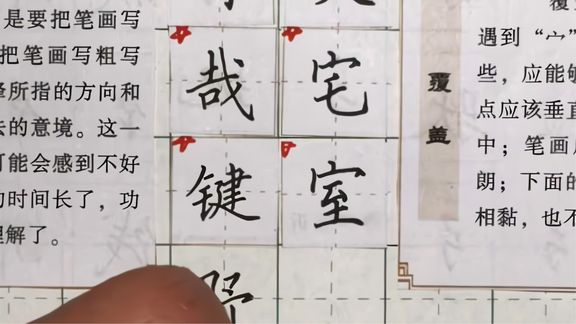 是要把笔画写
把笔画写粗写
所指的方向和
去的意境。这一
可能会感到不好
的时间长了，功
理解了。
哉
宅
键
室
野
覆盖
遇到“宀”
些，应能够
点应该垂直
中；笔画
朗；下面的
相黏，也不